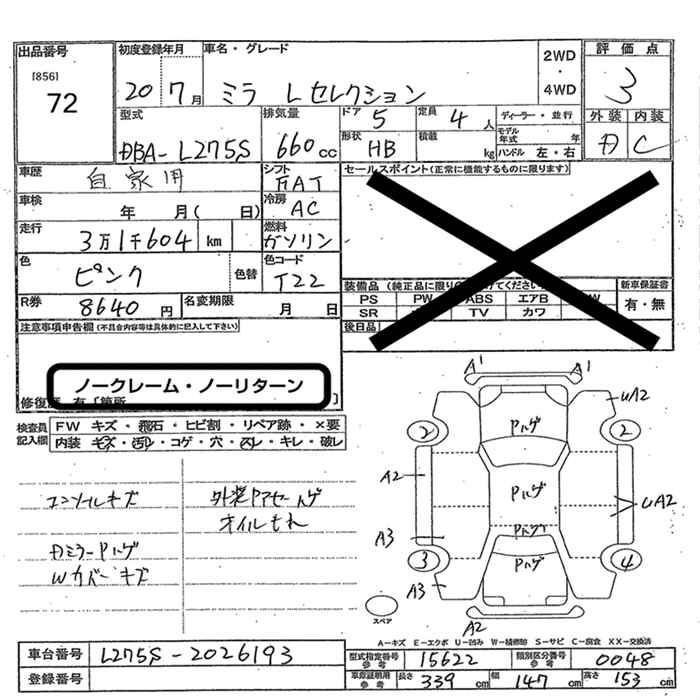 出品番号
[856]
72
初度登録年月
20 7月
車名・グレード
ミラ Lセレクション
2WD
・
4WD
評価点
3
外装 内装
D C
型式
DBA-L275S
排気量
660cc
ドア
5
定員
4人
形状
HB
積載
kg
ディーラー・並行
モデル年式 年
ハンドル 左・右
車歴
自家用
シフト
FAT
車検
年 月( 日)
冷房
AC
走行
3万1千604 km
燃料
ガソリン
色
ピンク
色替
色コード
T22
R券
8640円
名変期限
月 日
セールスポイント(正常に機能するものに限ります)
装備品
PS PW ABS エアB
SR TV カワ
後日品
新車保証書
有・無
注意事項申告欄(不具合内容等は具体的に記入して下さい)
ノークレーム・ノーリターン
検査員記入欄
FW キズ・飛石・ヒビ割・リペア跡・×要
内装 キズ・汚れ・コゲ・穴・スレ・キレ・破レ
エンソイルキズ
DミラーPハゲ
Wカバーキズ
オイルもれ
A1 A1
UA2
Pハゲ
2 2
A2
Pハゲ
UA2
A3
Pハゲ
3 4
Pハゲ
A3
A2
スペア
A-キズ E-エクボ U-凹み W-補修跡 S-サビ C-腐食 XX-交換済
車台番号
L275S-2026193
登録番号
型式指定番号参考
15622
類別区分番号参考
0048
車庫証明用参考
長さ 339cm 幅 147cm 高さ 153cm